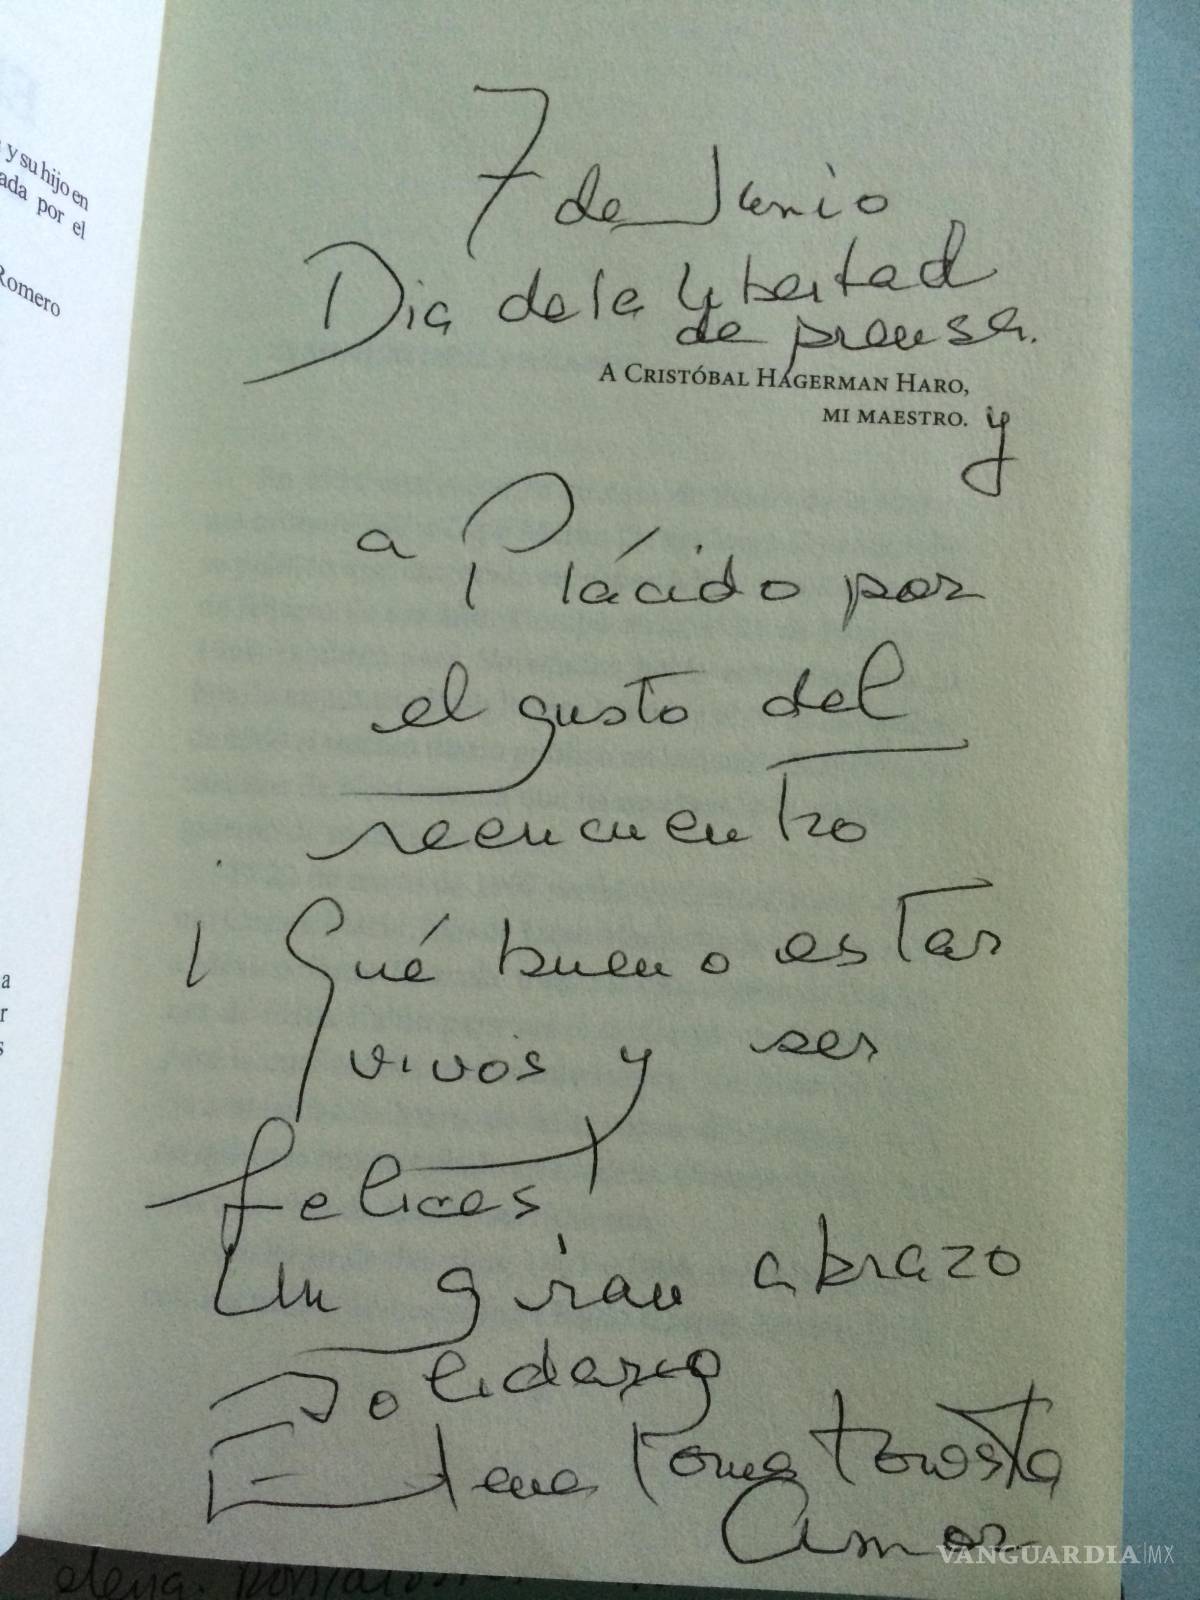 y su hijo en
ada por el
Romero
a
r
s
7 de Junio
Dia de la libertad
de prensa.
A CRISTÓBAL HAGERMAN HARO,
MI MAESTRO. y
a Plácido por
el gusto del
reencuentro
¡Qué bueno estar
vivos y ser
felices!
Un gran abrazo
solidario
Elena
Amor
VANGUARDIA|MX
elena.